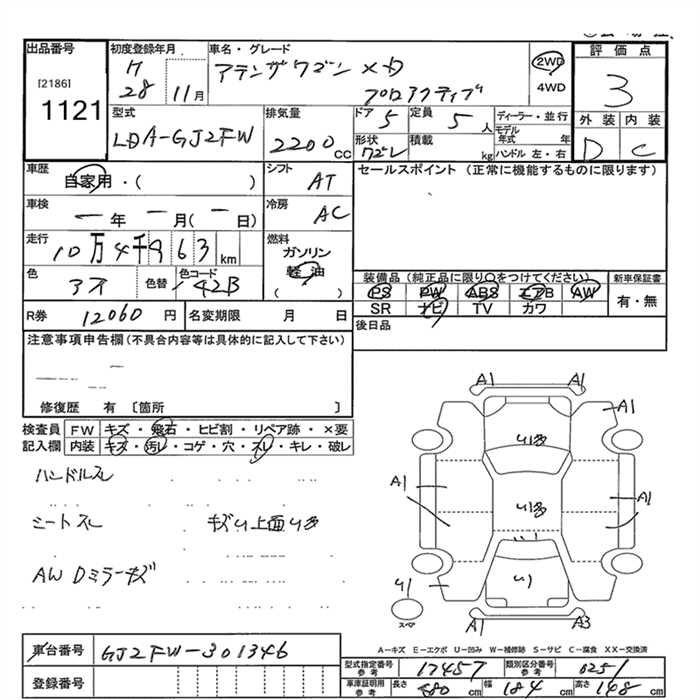 出品番号
[2186]
1121
初度登録年月
H
28 11月
車名・グレード
アテンザワゴン XD
プロアクティブ
2WD
4WD
評価点
3
外装 内装
D C
型式
LDA-GJ2FW
排気量
2200 cc
ドア 5
定員 5 人
ディーラー・並行
形状 ワゴン
積載 kg
モデル年式 年
ハンドル 左・右
車歴
自家用・( )
シフト AT
セールスポイント (正常に機能するものに限ります)
車検
一年 一月(一日)
冷房 AC
走行
10万4千963km
燃料
ガソリン
軽油
( )
色
アオ
色替
色コード
42B
装備品 (純正品に限り○をつけてください)
PS PW ABS エアB AW
SR ナビ TV カワ
新車保証書
有・無
R券 12060円
名変期限 月 日
後日品
注意事項申告欄(不具合内容等は具体的に記入して下さい)
修復歴 有 〔箇所 〕
検査員 FW キズ・飛石・ヒビ割・リペア跡・×要
記入欄 内装 キズ・汚レ・コゲ・穴・スレ・キレ・破レ
ハンドルスレ
シートスレ キズU上面U多
AW Dミラーキズ
A1 A1
A1
U多
A1 U多 A1
U1 U1
スペア
A1 A3
A-キズ E-エクボ U-凹み W-補修跡 S-サビ C-腐食 XX-交換済
車台番号 GJ2FW-301346
登録番号
型式指定番号 参考 17457
類別区分番号 参考 0251
車庫証明用 参考 長さ 480 cm 幅 184 cm 高さ 148 cm